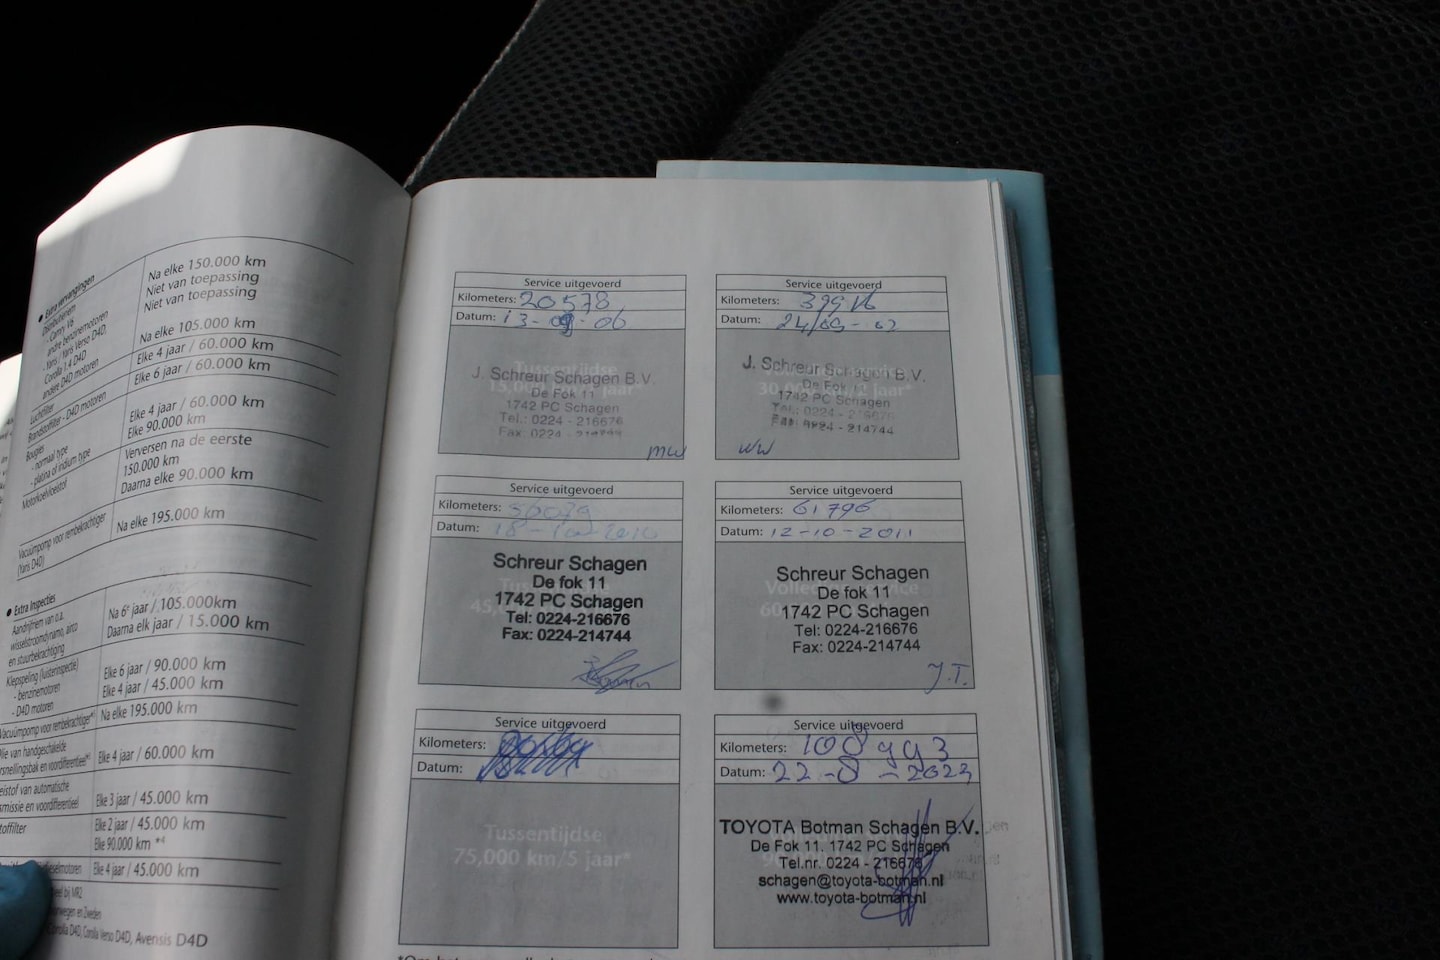 Extra vervangingen
Distributieriem
- Camry V6
Na elke 150.000 km
andere benzinemotoren
Niet van toepassing
- Yaris / Yaris Verso D4D,
Corolla 1.4 D4D
Niet van toepassing
andere D4D motoren
Na elke 105.000 km
Luchtfilter
Elke 4 jaar / 60.000 km
Brandstoffilter - D4D motoren
Elke 6 jaar / 60.000 km
Bougies
- normaal type
Elke 4 jaar / 60.000 km
- platina of iridium type
Elke 90.000 km
Motorkoelvloeistof
Verversen na de eerste
150.000 km
Daarna elke 90.000 km
Vacuümpomp voor rembekrachtiger
(Yaris D4D)
Na elke 195.000 km
Extra Inspecties
Aandrijfriem van o.a.
wisselstroomdynamo, airco
en stuurbekrachtiging
Na 6e jaar / 105.000km
Daarna elk jaar / 15.000 km
Klepspeling (luisterinspectie)
- benzinemotoren
Elke 6 jaar / 90.000 km
- D4D motoren
Elke 4 jaar / 45.000 km
Vacuümpomp voor rembekrachtiger
Na elke 195.000 km
Olie van handgeschakelde
versnellingsbak en voordifferentieel
Elke 4 jaar / 60.000 km
van automatische
en voordifferentieel
Elke 3 jaar / 45.000 km
Elke 2 jaar / 45.000 km
Elke 90.000 km
Elke 4 jaar / 45.000 km
bij MR2
en Zweden
Corolla D4D, Corolla Verso D4D, Avensis D4D
Service uitgevoerd
Kilometers: 20578
Datum: 13-09-06
Tussentijdse
J. Schreur Schagen B.V.
De Fok 11
1742 PC Schagen
Tel.: 0224 - 216676
Fax: 0224 - 214744
MW
Service uitgevoerd
Kilometers:
Datum:
J. Schreur Schagen B.V.
De Fok 11
1742 PC Schagen
Tel.: 0224 - 216676
Fax: 0224 - 214744
WW
Service uitgevoerd
Kilometers:
Datum: 18-10-2010
Schreur Schagen
De fok 11
1742 PC Schagen
Tel: 0224-216676
Fax: 0224-214744
Service uitgevoerd
Kilometers: 61796
Datum: 12-10-2011
Schreur Schagen
De fok 11
1742 PC Schagen
Tel: 0224-216676
Fax: 0224-214744
J.T.
Service uitgevoerd
Kilometers:
Datum:
Tussentijdse
75,000 km/5 jaar*
Service uitgevoerd
Kilometers: 108993
Datum: 22-8-2023
TOYOTA Botman Schagen B.V.
De Fok 11. 1742 PC Schagen
Tel.nr. 0224 - 216676
schagen@toyota-botman.nl
www.toyota-botman.nl